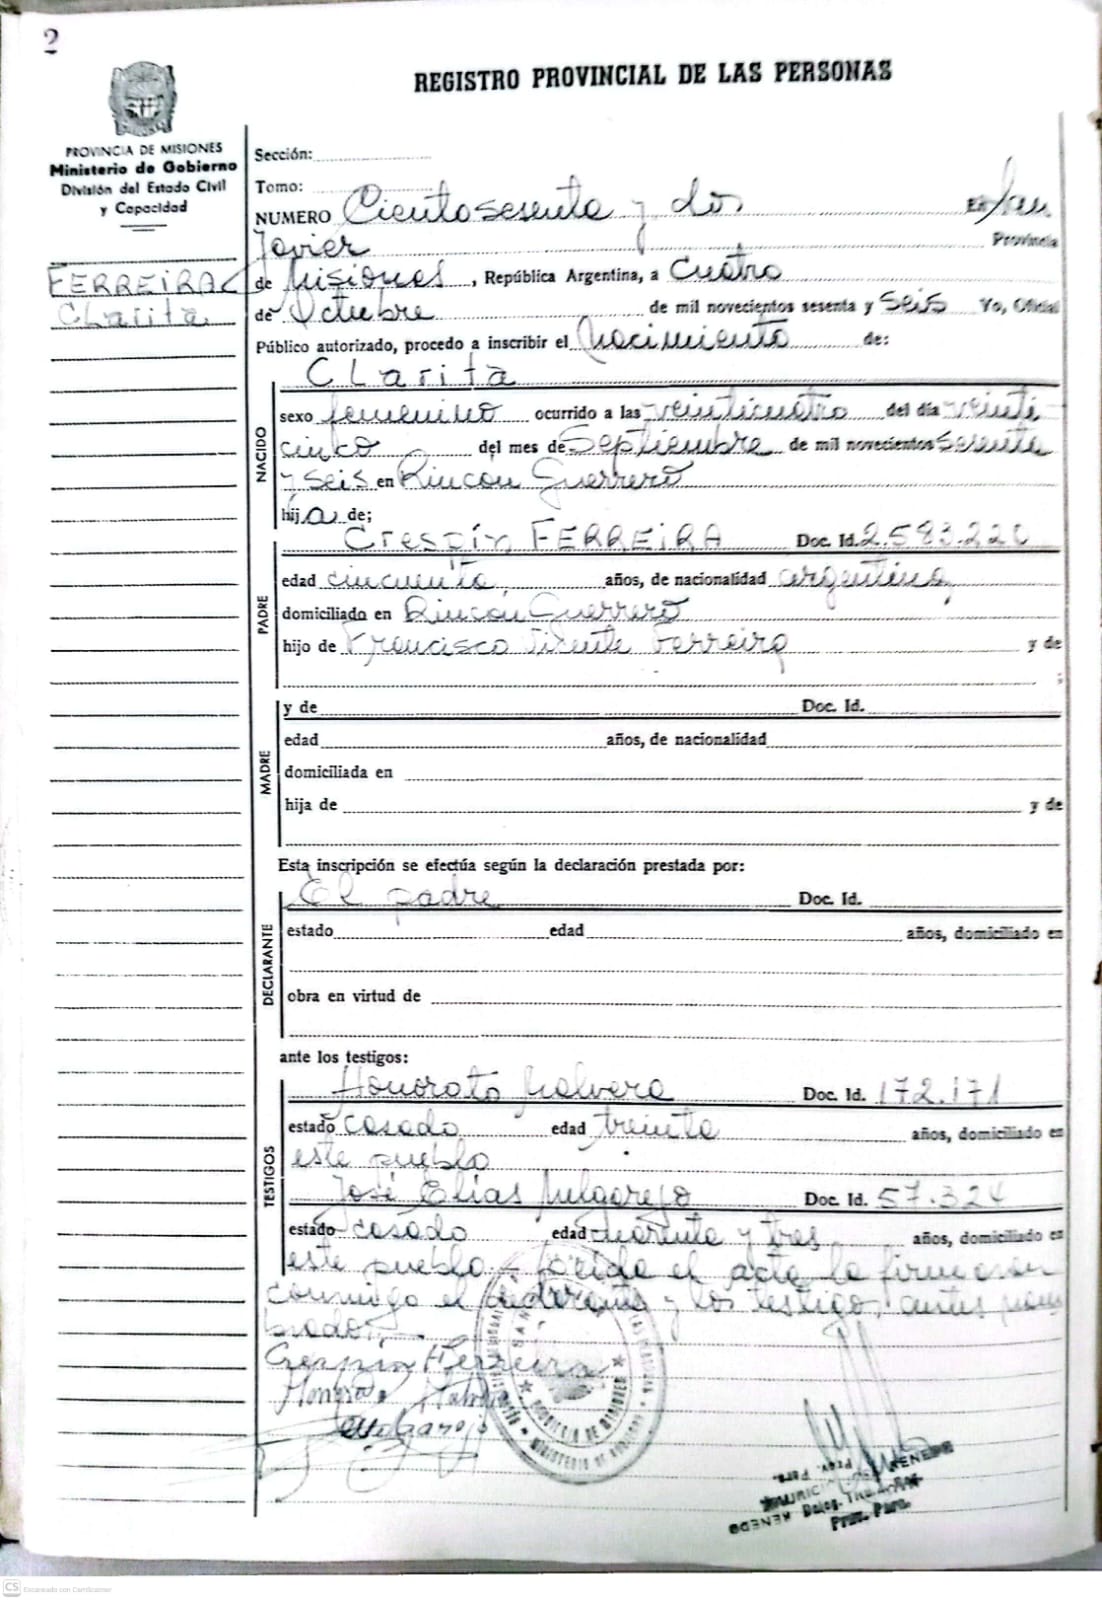 2
REGISTRO PROVINCIAL DE LAS PERSONAS
PROVINCIA DE MISIONES
Ministerio de Gobierno
División del Estado Civil
y Capacidad
FERREIRA
CLarita
Sección:
Tomo:
NUMERO Ciento sesenta y dos En San
Javier Provincia
de Misiones, República Argentina, a Cuatro
de Octubre de mil novecientos sesenta y Seis Yo, Oficial
Público autorizado, procedo a inscribir el Nacimiento de:
CLarita
NACIDO
sexo femenino ocurrido a las veinticuatro del día veinti
cinco del mes de Septiembre de mil novecientos sesenta
y seis en Rincon Guerrero
hija de;
PADRE
Crespín FERREIRA Doc. Id. 2.583.220
edad cincuenta, años, de nacionalidad argentina,
domiciliado en Rincon Guerrero
hijo de Francisco Vicente Ferreira y de
;
MADRE
y de Doc. Id.
edad años, de nacionalidad
domiciliada en
hija de y de
Esta inscripción se efectúa según la declaración prestada por:
DECLARANTE
El padre Doc. Id.
estado edad años, domiciliado en
obra en virtud de
ante los testigos:
TESTIGOS
Honorato Doc. Id. 172.171
estado casado edad treinta años, domiciliado en
este pueblo
José Elías Melgarejo Doc. Id. 57.324
estado casado edad cuarenta y tres años, domiciliado en
este pueblo - Leída el acta la firmaron
conmigo el declarante y los testigos antes nom
brados.-
Crespín Ferreira
Melgarejo
PROVINCIA DE MISIONES
MINISTERIO DE GOBIERNO
Prov. Para.
CS Escaneado con CamScanner